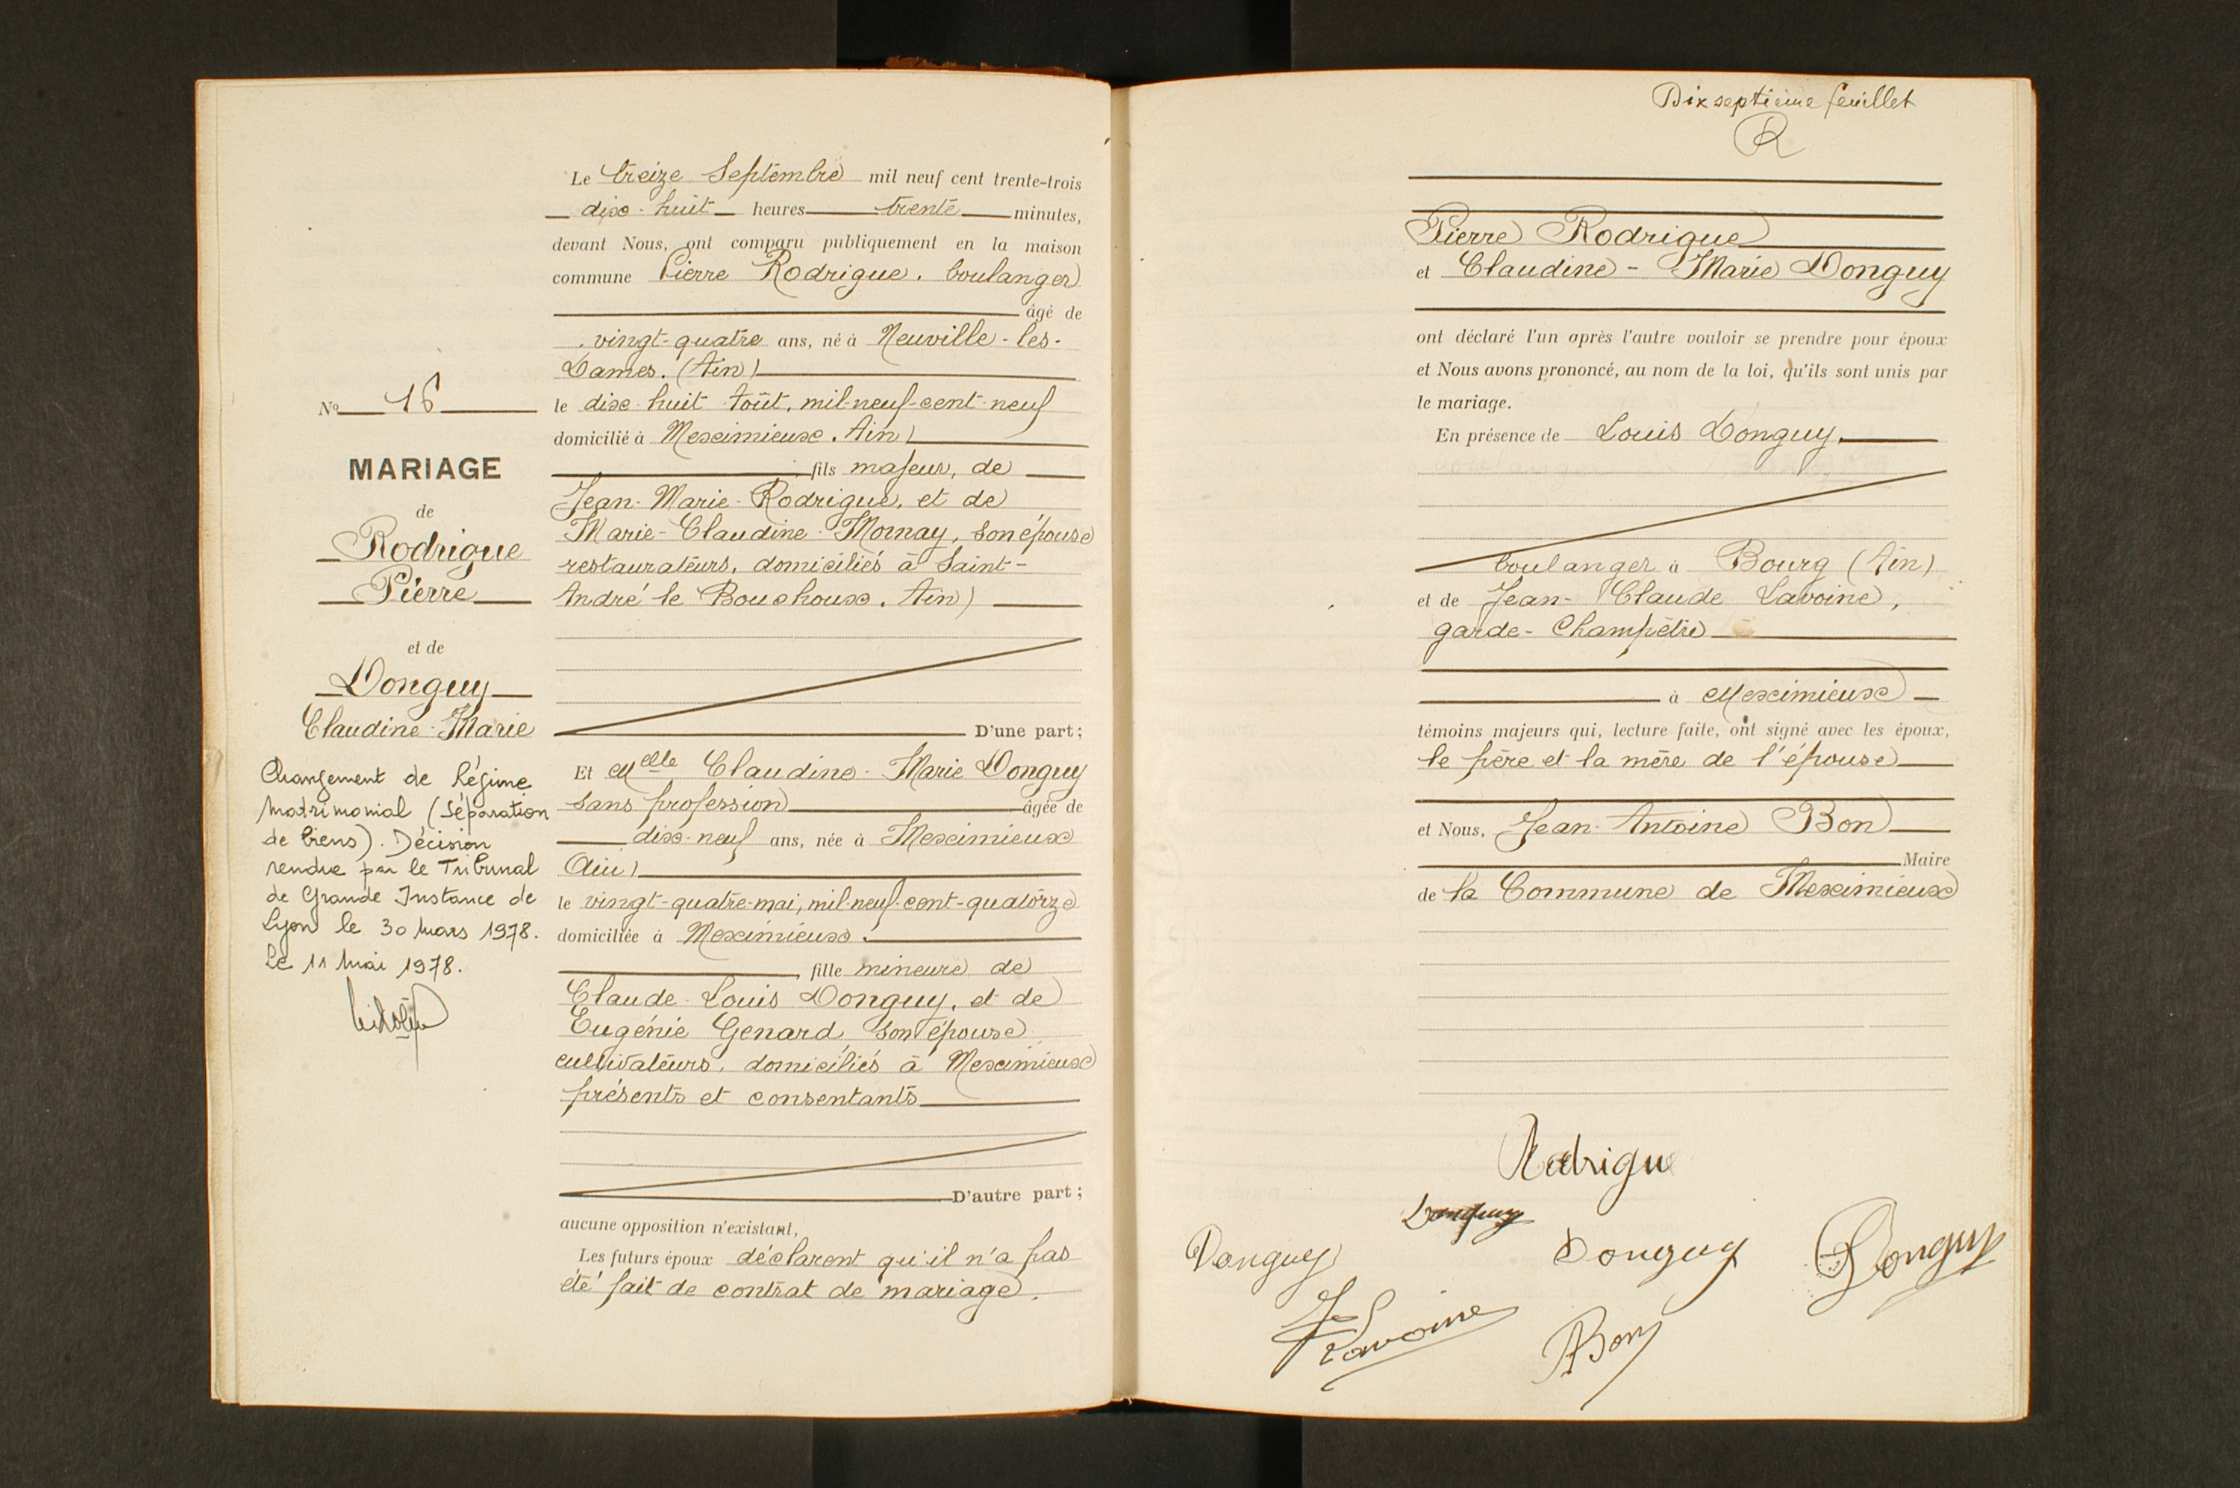 Le treize Septembre mil neuf cent trente-trois
dix-huit heures trente minutes,
devant Nous, ont comparu publiquement en la maison
commune Pierre Rodrigue. boulanger
âgé de
vingt-quatre ans, né à Neuville-les-
Dames. (Ain)
le dix-huit Août, mil-neuf-cent-neuf
domicilié à Meximieux. Ain)
fils majeur, de
Jean-Marie-Rodrigue, et de
Marie-Claudine-Mornay, son épouse
restaurateurs, domiciliés à Saint-
André le Bouchoux. Ain)
D'une part;
Et Melle Claudine-Marie Donguy
sans profession âgée de
dix-neuf ans, née à Meximieux
Ain)
le vingt-quatre-mai, mil-neuf-cent-quatorze
domiciliée à Meximieux.
, fille mineure de
Claude-Louis Donguy, et de
Eugénie Genard, son épouse
cultivateurs, domiciliés à Meximieux
présents et consentants
D'autre part;
aucune opposition n'existant,
Les futurs époux déclarent qu'il n'a pas
été fait de contrat de mariage.
No 16
MARIAGE
de
Rodrigue
Pierre
et de
Donguy
Claudine-Marie
Changement de Régime
matrimonial (Séparation
de biens). Décision
rendue par le Tribunal
de Grande Instance de
Lyon le 30 Mars 1978.
Le 11 Mai 1978.
Dix septième feuillet
R
Pierre Rodrigue
et Claudine-Marie Donguy
ont déclaré l'un après l'autre vouloir se prendre pour époux
et Nous avons prononcé, au nom de la loi, qu'ils sont unis par
le mariage.
En présence de Louis Donguy.
boulanger à Bourg (Ain)
et de Jean-Claude Lavoine,
garde-Champêtre
à Meximieux
témoins majeurs qui, lecture faite, ont signé avec les époux,
le père et la mère de l'épouse
et Nous, Jean-Antoine Bon
Maire
de la Commune de Meximieux
Rodrigue
Donguy
Donguy
Donguy
Donguy
Lavoine
Bon